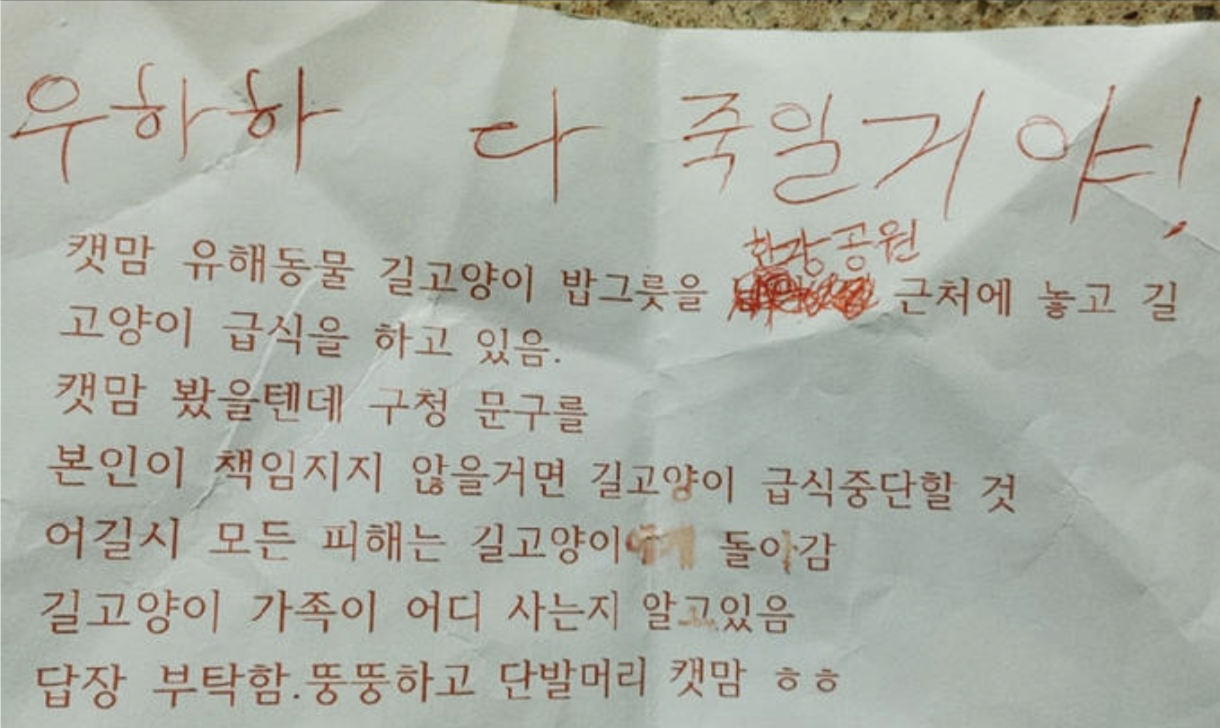 우하하 다 죽일거야!
한강공원
캣맘 유해동물 길고양이 밥그릇을 근처에 놓고 길
고양이 급식을 하고 있음.
캣맘 봤을텐데 구청 문구를
본인이 책임지지 않을거면 길고양이 급식중단할 것
어길시 모든 피해는 길고양이에게 돌아감
길고양이 가족이 어디 사는지 알고있음
답장 부탁함.뚱뚱하고 단발머리 캣맘 ㅎㅎ